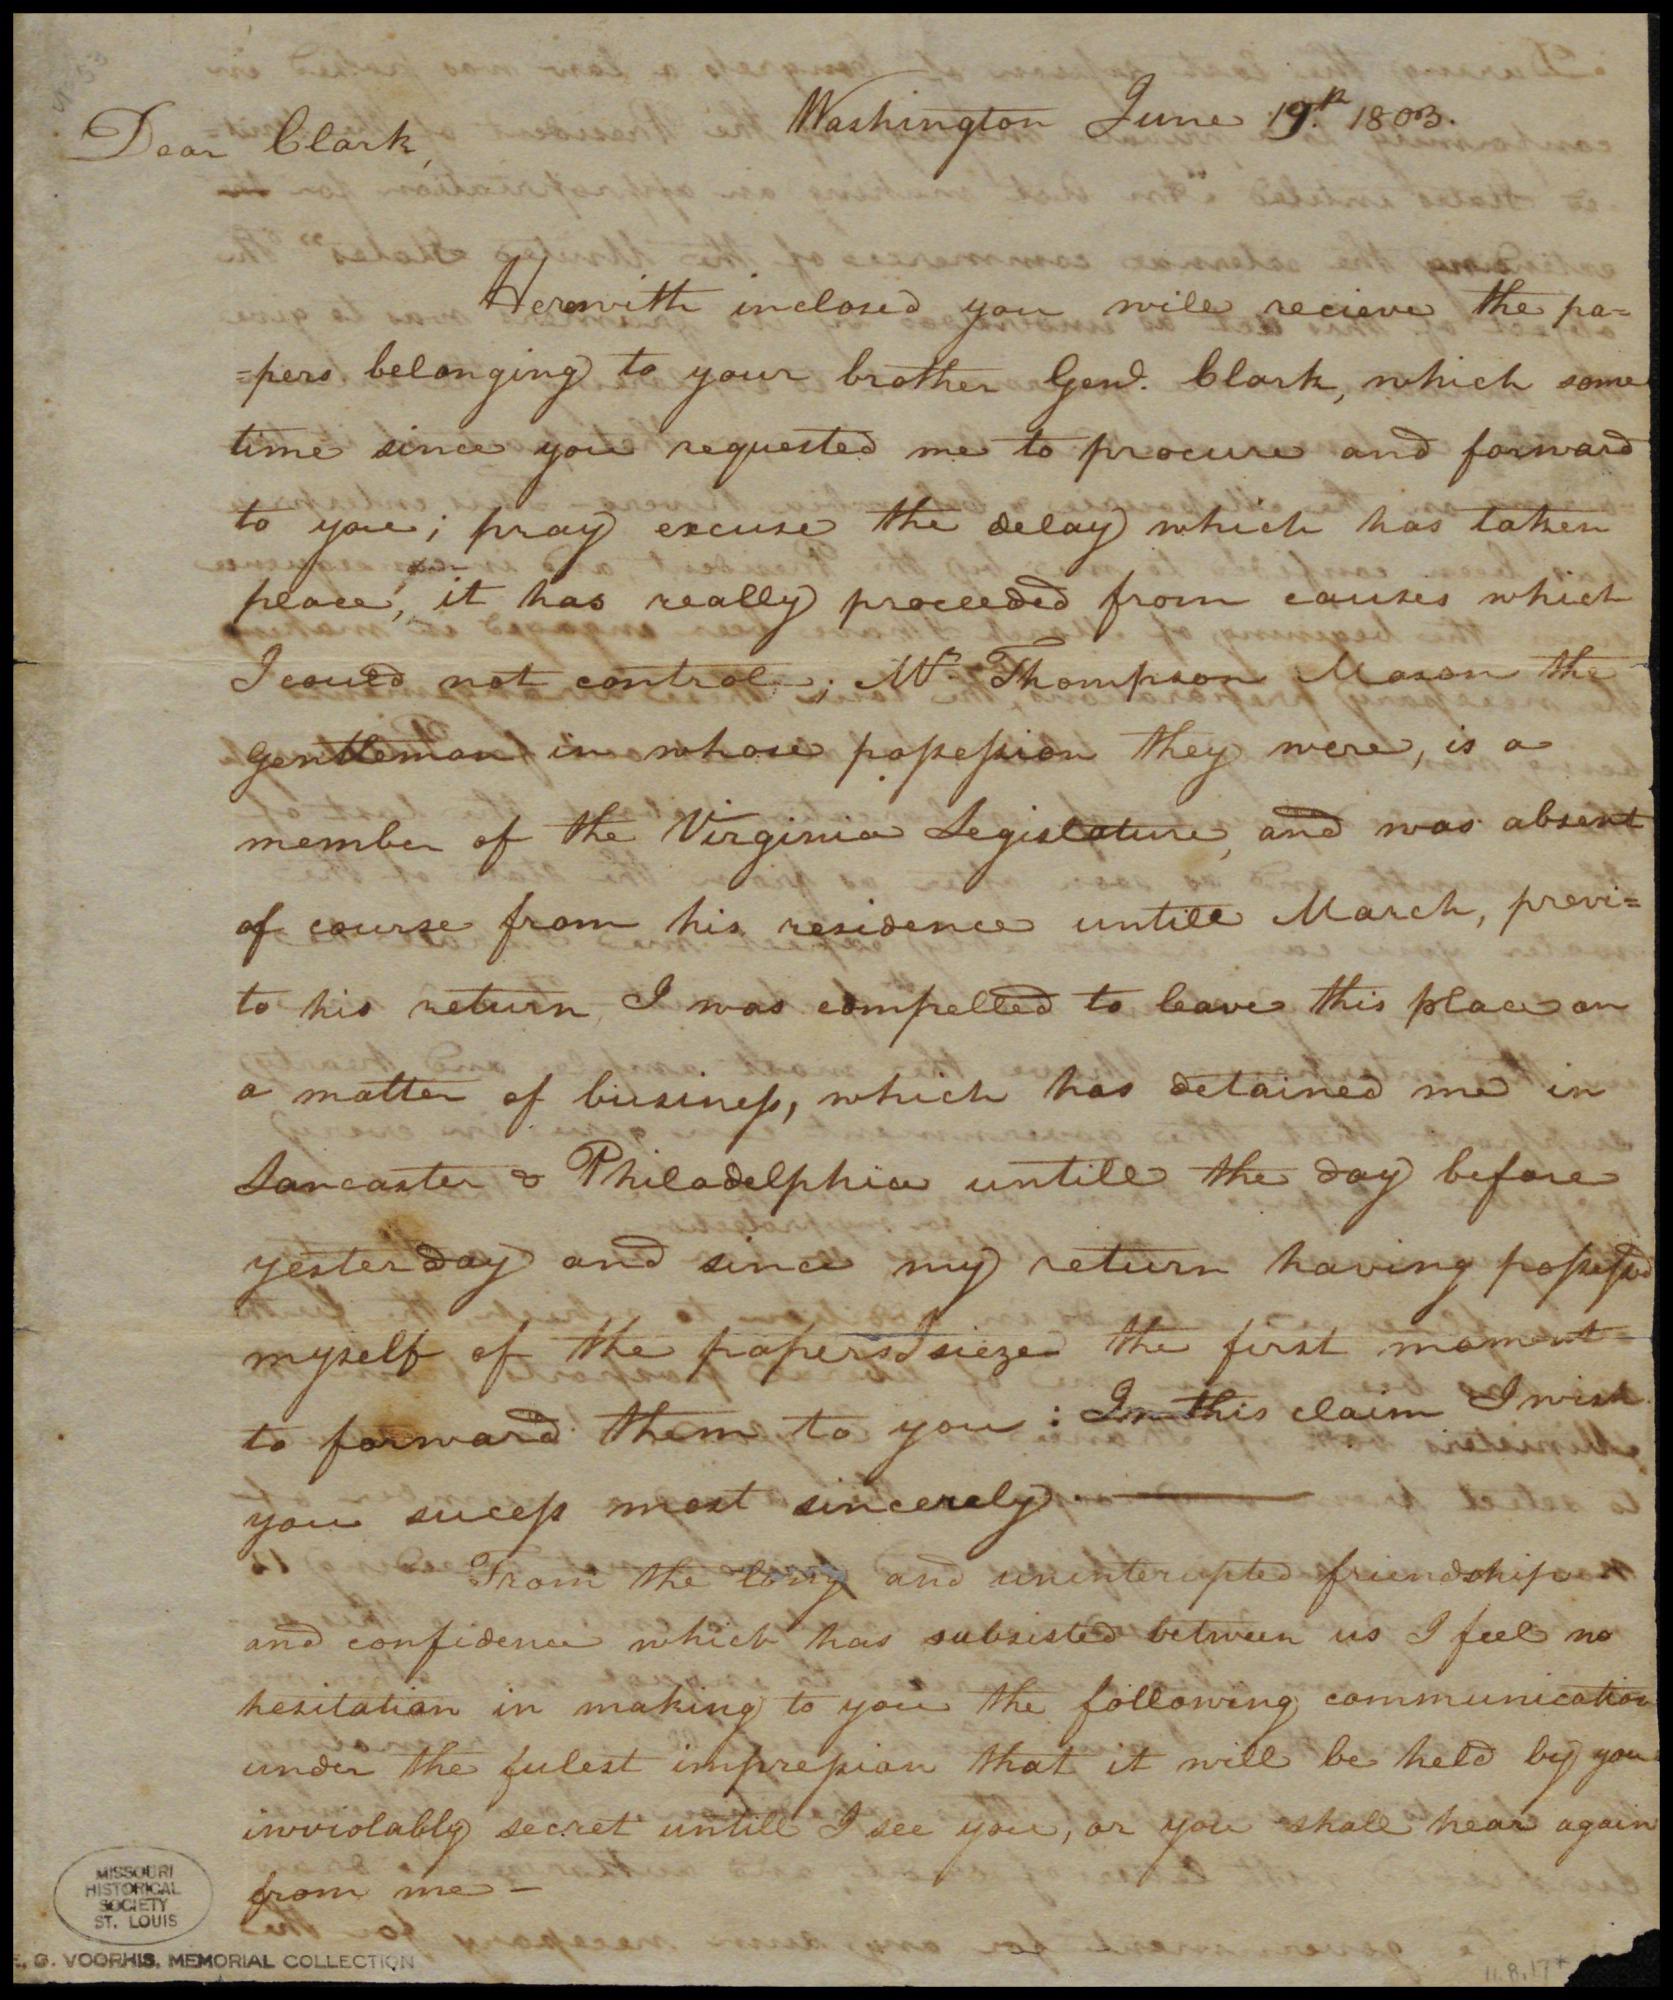 Washington June 19th 1803.
Dear Clark,
Herewith inclosed you will recieve the pa=
=pers belonging to your brother Genl. Clark, which some
time since you requested me to procure and forward
to you; pray excuse the delay which has taken
place, it has really proceeded from causes which
I could not control; Mr. Thompson Mason the
gentleman in whose possession they were, is a
member of the Virginia Legislature, and was absent
of course from his residence untill March, previ=
to his return I was compelled to leave this place on
a matter of business, which has detained me in
Lancaster & Philadelphia untill the day before
yesterday and since my return having possessed
myself of the papers I sieze the first moment
to forward them to you: In this claim I wish
you sucess most sincerely.
From the long and uninterupted friendship
and confidence which has subsisted between us I feel no
hesitation in making to you the following communication
under the fulest impression that it will be held by you
inviolably secret untill I see you, or you shall hear again
from me -
MISSOURI
HISTORICAL
SOCIETY
ST. LOUIS
E. G. VOORHIS MEMORIAL COLLECTION